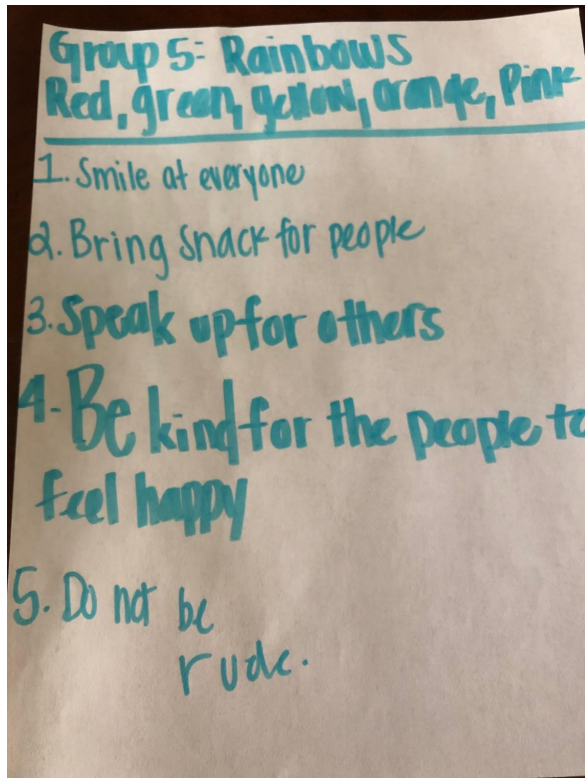 Group 5: Rainbows
Red, green, yellow, orange, Pink
1. Smile at everyone
2. Bring Snack for people
3. Speak up for others
4. Be kind for the people to
feel happy
5. Do not be
rude.